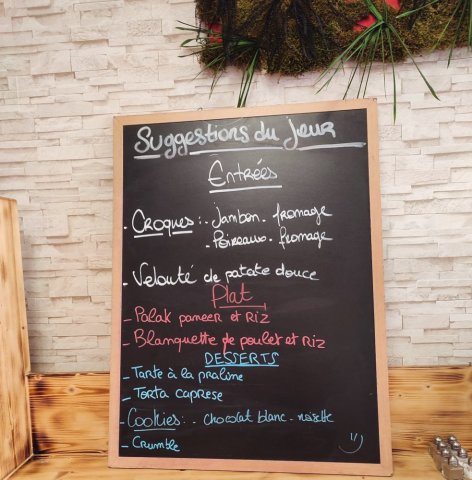 Suggestions du jour
Entrées
- Croques : . Jambon . fromage
. Poireaux . fromage
- Velouté de patate douce
Plat
- Palak paneer et Riz
- Blanquette de poulet et Riz
DESSERTS
- Tarte à la praline
- Torta caprese
- Cookies : . chocolat blanc . noisette
- Crumble